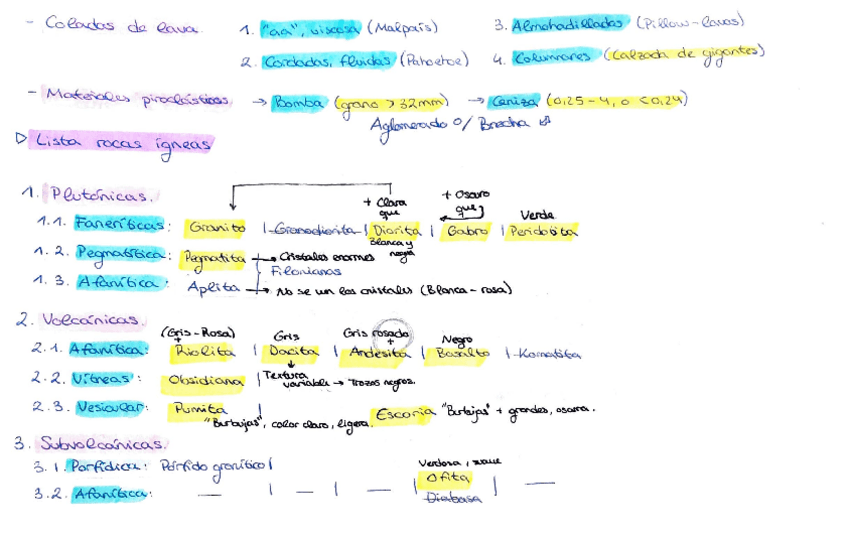 - Coladas de lava. 1. "aa", viscosa (Malpaís) 3. Almohadilladas (Pillow-lavas)
2. Cordadas, fluidas (Pahoehoe) 4. Columnares (Calzada de gigantes)
- Materiales piroclásticos → Bomba (grano > 32mm) → Ceniza (0,25 - 4, o < 0,24)
Aglomerado o/ Brecha
▷ Lista rocas ígneas
1. Plutónicas.
+ Clara que + Oscuro que Verde
1.1. Faneríticas: Granito | Granodiorita | Diorita | Gabro | Peridotita
Blanca y negra
1.2. Pegmatítica: Pegmatita → Cristales enormes
Filonianas
1.3. Afanítica: Aplita → No se ven los cristales (Blanca - rosa)
2. Volcánicas.
(Gris - Rosa) Gris Gris rosado Negro
+ +
2.1. Afanítica: Riolita | Dacita | Andesita | Basalto | Komatita
2.2. Vítreas: Obsidiana | Textura variable → Trozos negros.
2.3. Vesicular: Pumita | Escoria "Burbujas" + grandes, oscura.
"Burbujas", color claro, ligera.
3. Subvolcánicas.
3.1. Porfídica: Pórfido granítico |
Verdosa,
3.2. Afanítica: — | — | — | Ofita | —
Diabasa